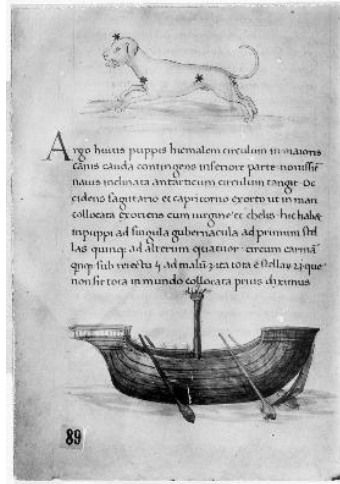 Argo huius puppis hiemalem circulum in maioris
canis cauda contingens inferiore parte
nauis inclinata antarticum circulum tangit Oc
cidens sagitario et capricorno exorto ut in mari
collocata exoriens cum uirgine et chelis hic habet
in puppi ad singula gubernacula ad primum stel
las quinque ad alterum quatuor circum
sub ad ita tota
non sit tota in mundo collocata prius diximus
89